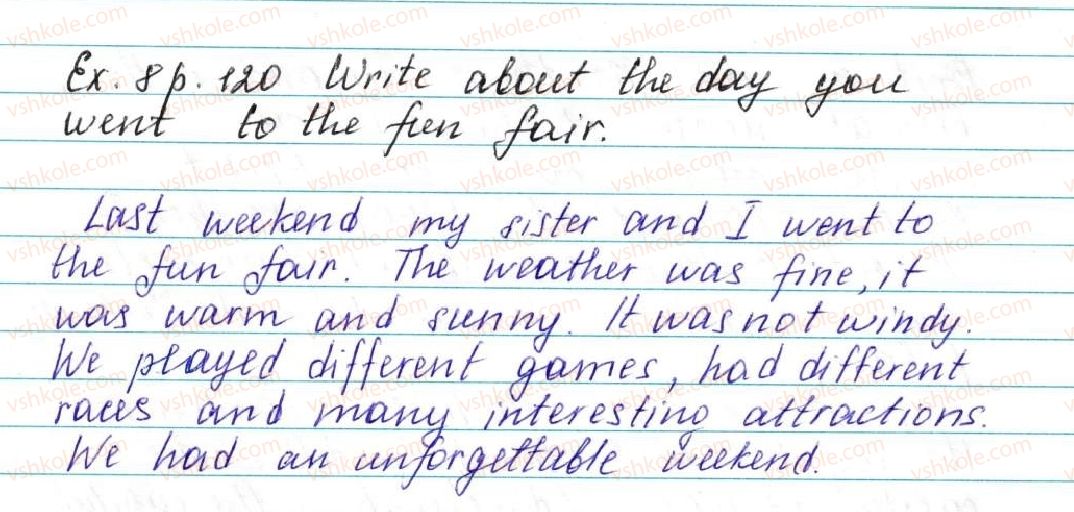 Ex. 8 p. 120 Write about the day you
went to the fun fair.
Last weekend my sister and I went to
the fun fair. The weather was fine, it
was warm and sunny. It was not windy.
We played different games, had different
races and many interesting attractions.
We had an unforgettable weekend.
vshkole.com